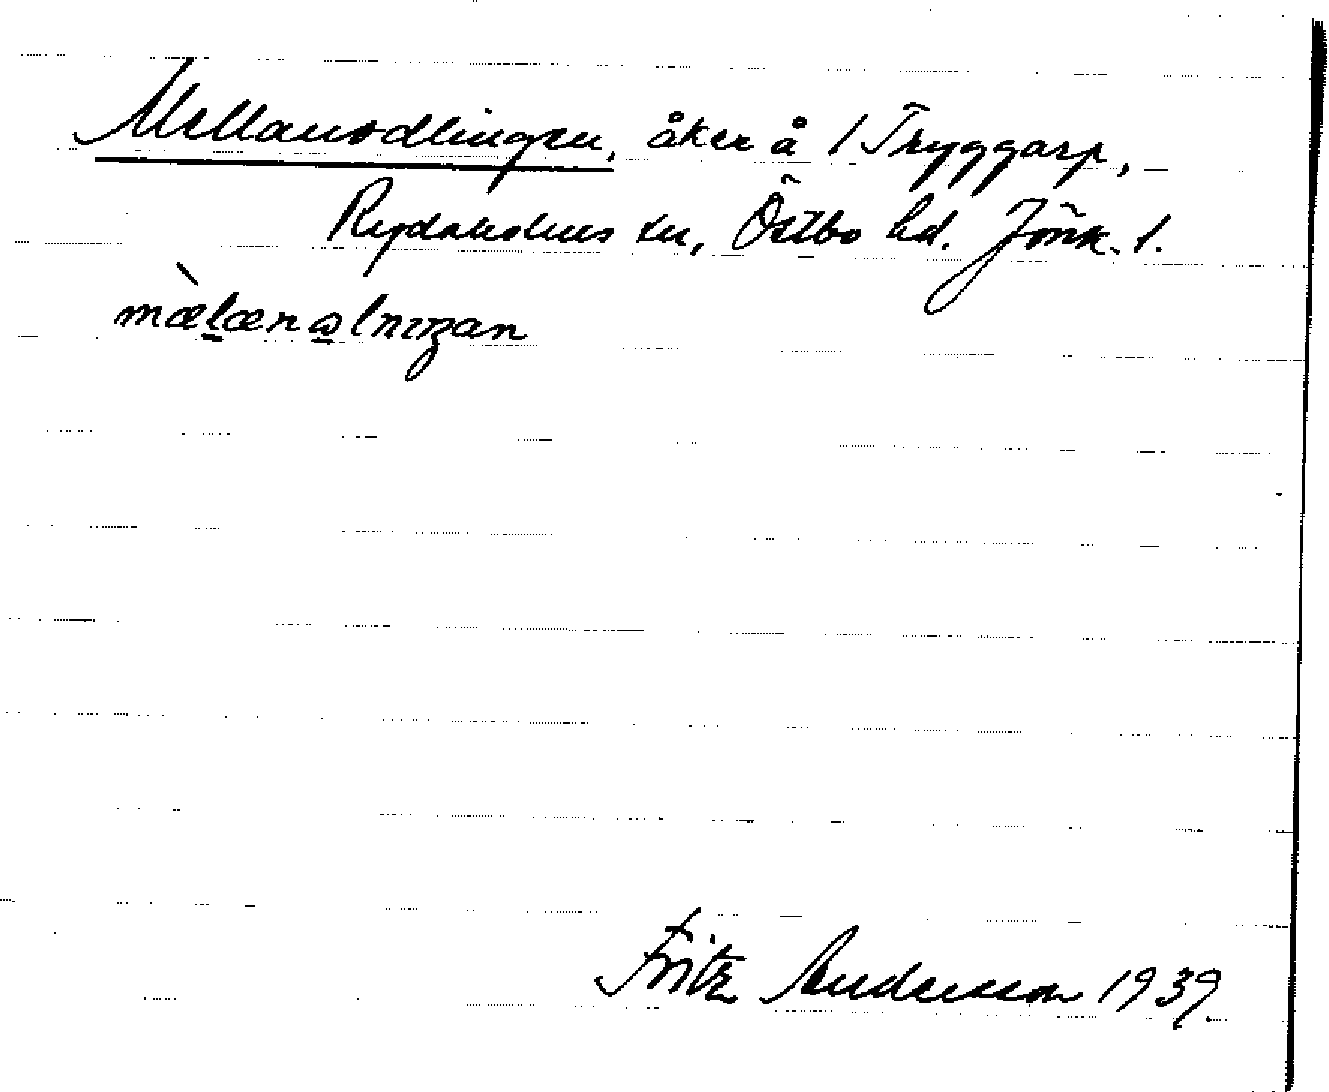 Mellanodlingen, åker å 1 Tryggarp,
Rydaholms sn, Östbo hd. Jönk. l.
mæ̀lænωlnıŋan
Fritz Andersson 1939